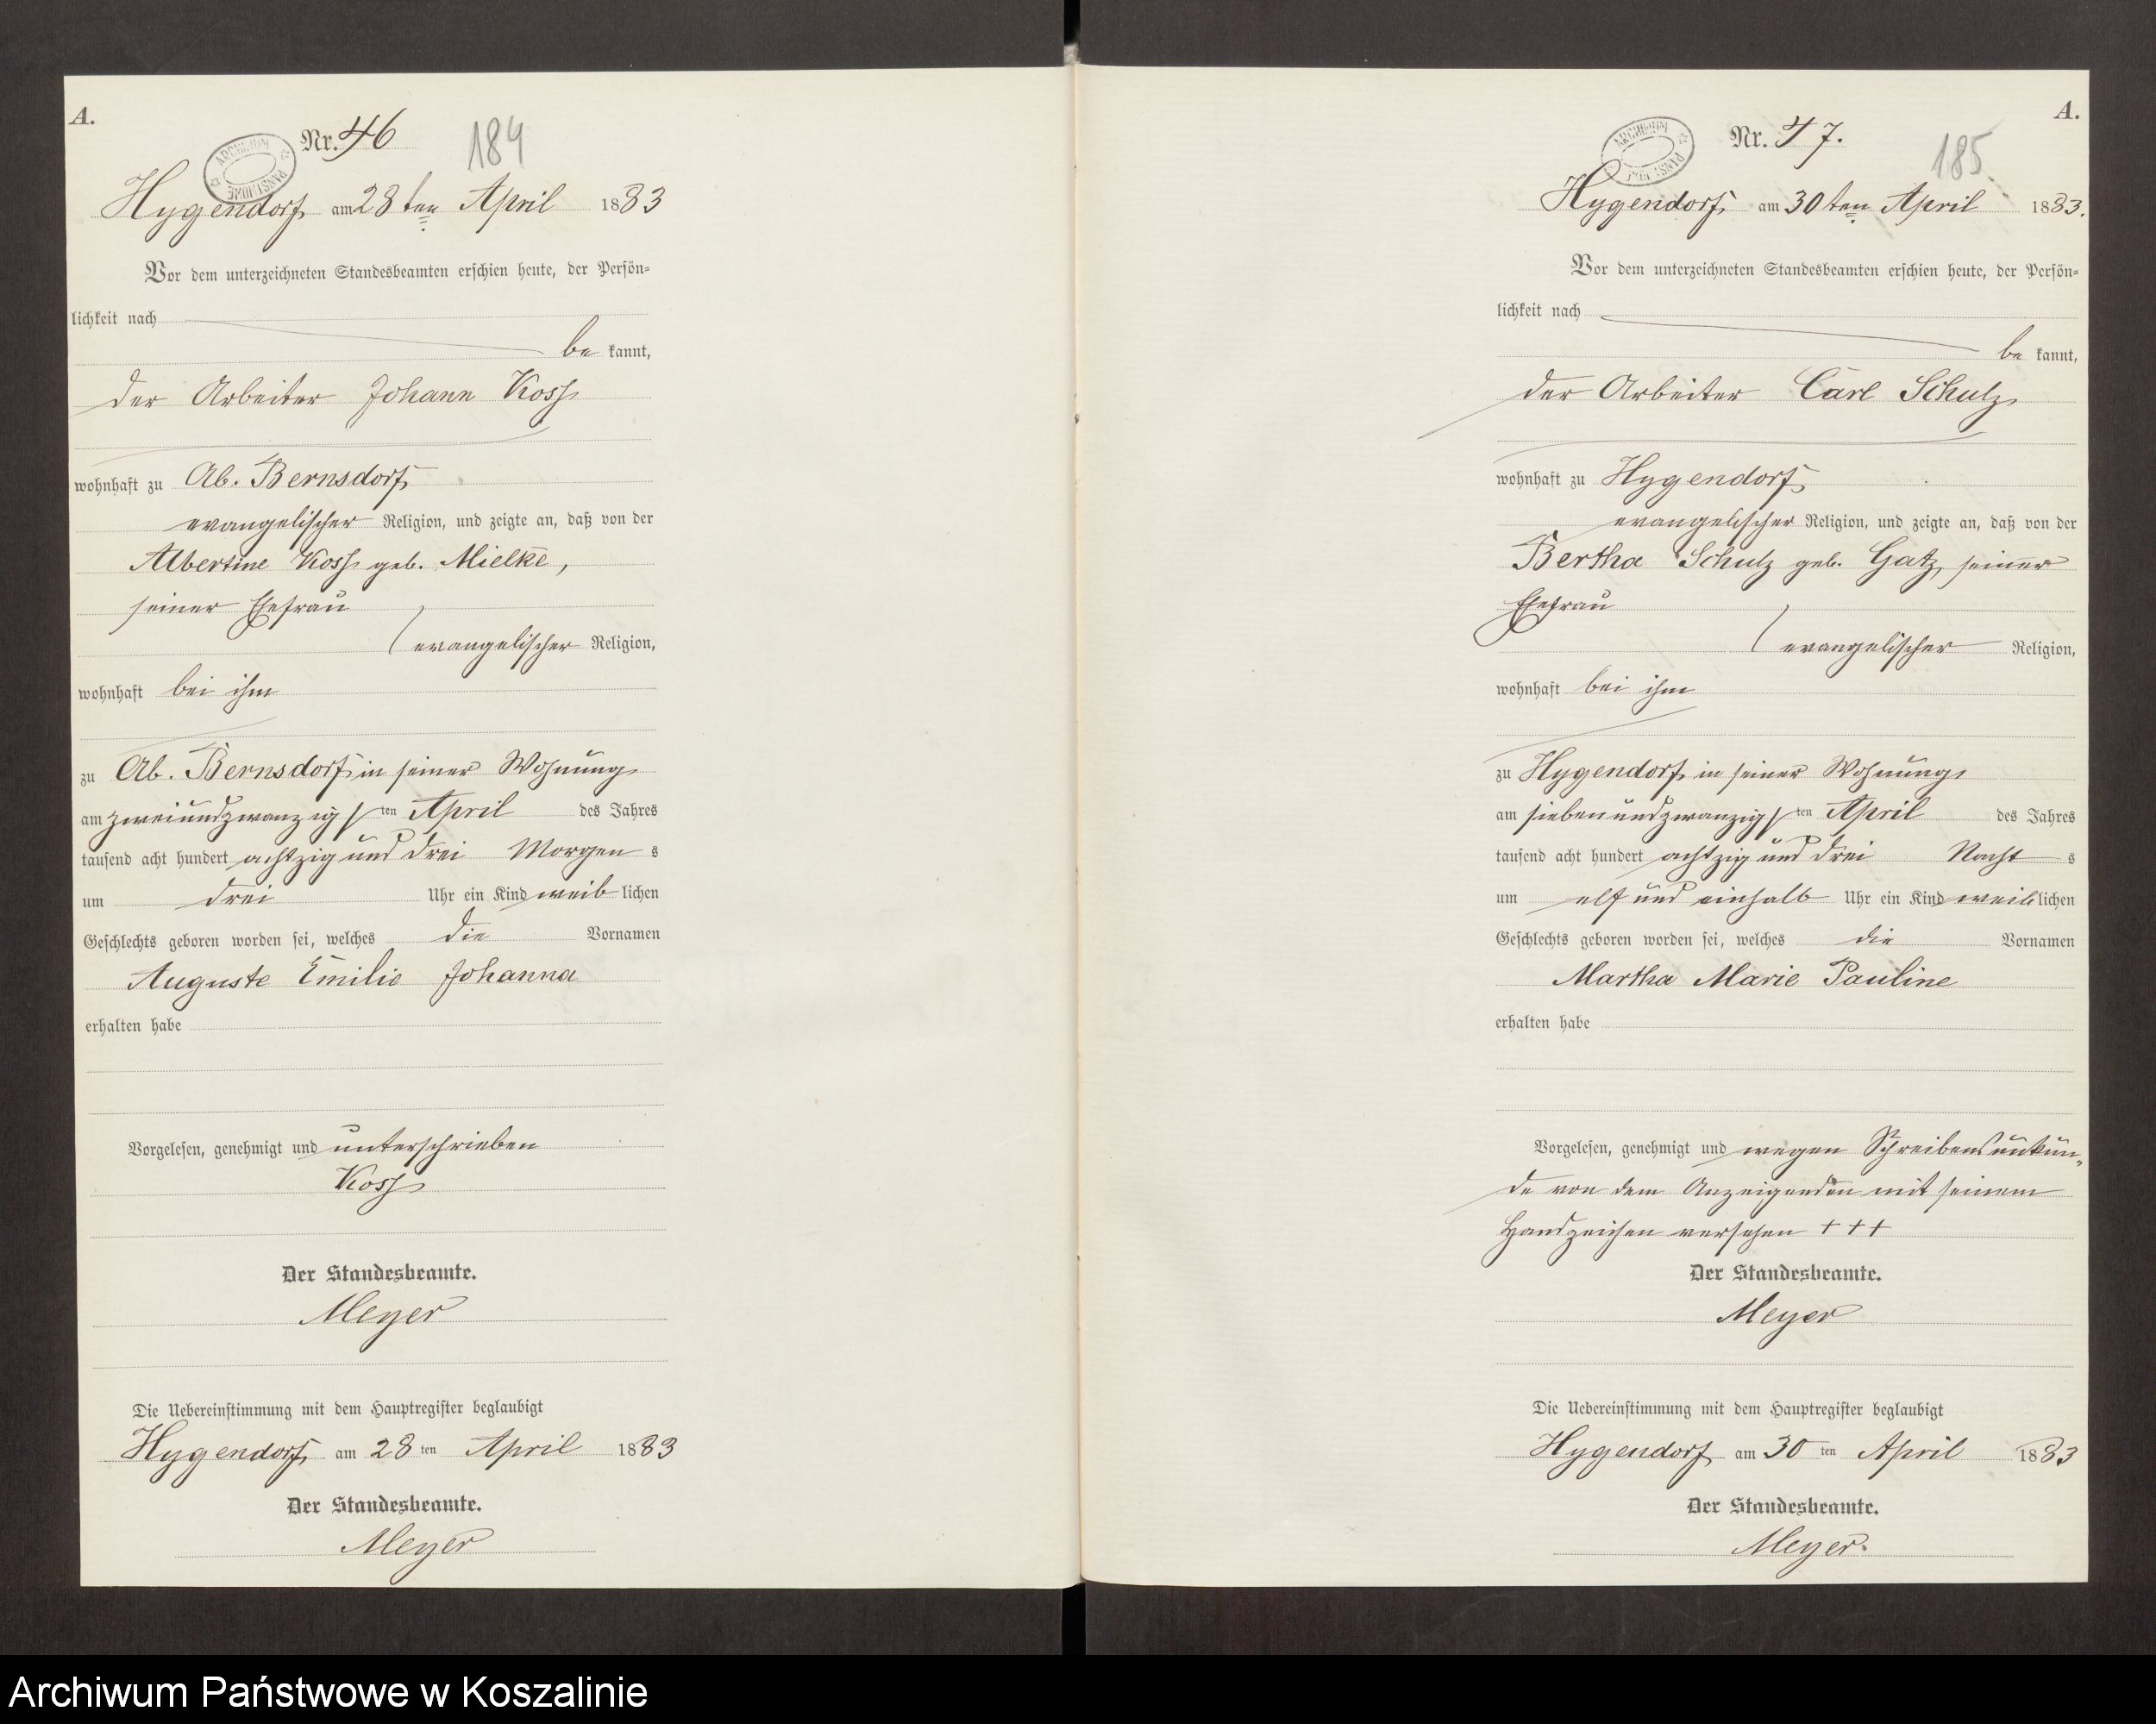 A.
Nr. 46
184
ARCHIWUM PAŃSTWOWE
Hygendorf, am 28ten April 1883
Vor dem unterzeichneten Standesbeamten erschien heute, der Persön-
lichkeit nach
be kannt,
der Arbeiter Johann Koss
wohnhaft zu Ab. Bernsdorf,
evangelischer Religion, und zeigte an, daß von der
Albertine Koss geb. Mielke,
seiner Ehefrau
evangelischer Religion,
wohnhaft bei ihm
zu Ab. Bernsdorf in seiner Wohnung
am zweiundzwanzigsten April des Jahres
tausend acht hundert achtzig und drei Morgens
um drei Uhr ein Kind weiblichen
Geschlechts geboren worden sei, welches die Vornamen
Auguste Emilie Johanna
erhalten habe
Vorgelesen, genehmigt und unterschrieben
Koss
Der Standesbeamte.
Meyer
Die Uebereinstimmung mit dem Hauptregister beglaubigt
Hygendorf, am 28ten April 1883
Der Standesbeamte.
Meyer
A.
Nr. 47.
185
ARCHIWUM PAŃSTWOWE
Hygendorf, am 30ten April 1883.
Vor dem unterzeichneten Standesbeamten erschien heute, der Persön-
lichkeit nach
be kannt,
der Arbeiter Carl Schulz
wohnhaft zu Hygendorf,
evangelischer Religion, und zeigte an, daß von der
Bertha Schulz geb. Gatz, seiner
Ehefrau
evangelischer Religion,
wohnhaft bei ihm
zu Hygendorf, in seiner Wohnung
am siebenundzwanzigsten April des Jahres
tausend acht hundert achtzig und drei Nachts
um elf und einhalb Uhr ein Kind weiblichen
Geschlechts geboren worden sei, welches die Vornamen
Martha Marie Pauline
erhalten habe
Vorgelesen, genehmigt und wegen Schreibensunkun-
de von dem Anzeigenden mit seinem
Handzeichen versehen + + +
Der Standesbeamte.
Meyer
Die Uebereinstimmung mit dem Hauptregister beglaubigt
Hygendorf, am 30ten April 1883
Der Standesbeamte.
Meyer.
Archiwum Państwowe w Koszalinie